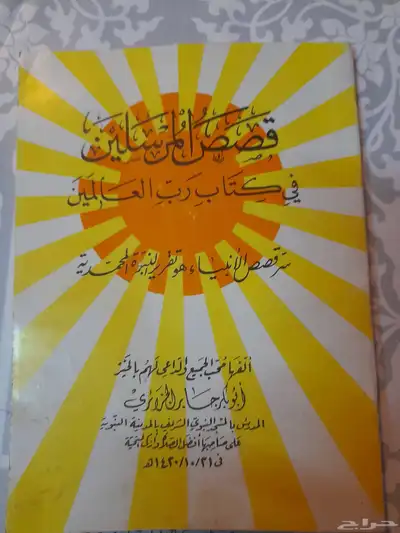 قصص المرسلين
في كتاب رب العالمين
سر قصص الأنبياء هو تقرير النبوة المحمدية
ألفها محب الجميع والداعي لهم بالخير
أبو بكر جابر الجزائري
المدرس بالمسجد النبوي الشريف بالمدينة النبوية
على صاحبها أفضل الصلاة وأزكى التحية
في ٢١/١٠/١٤٢٠هـ
حراج